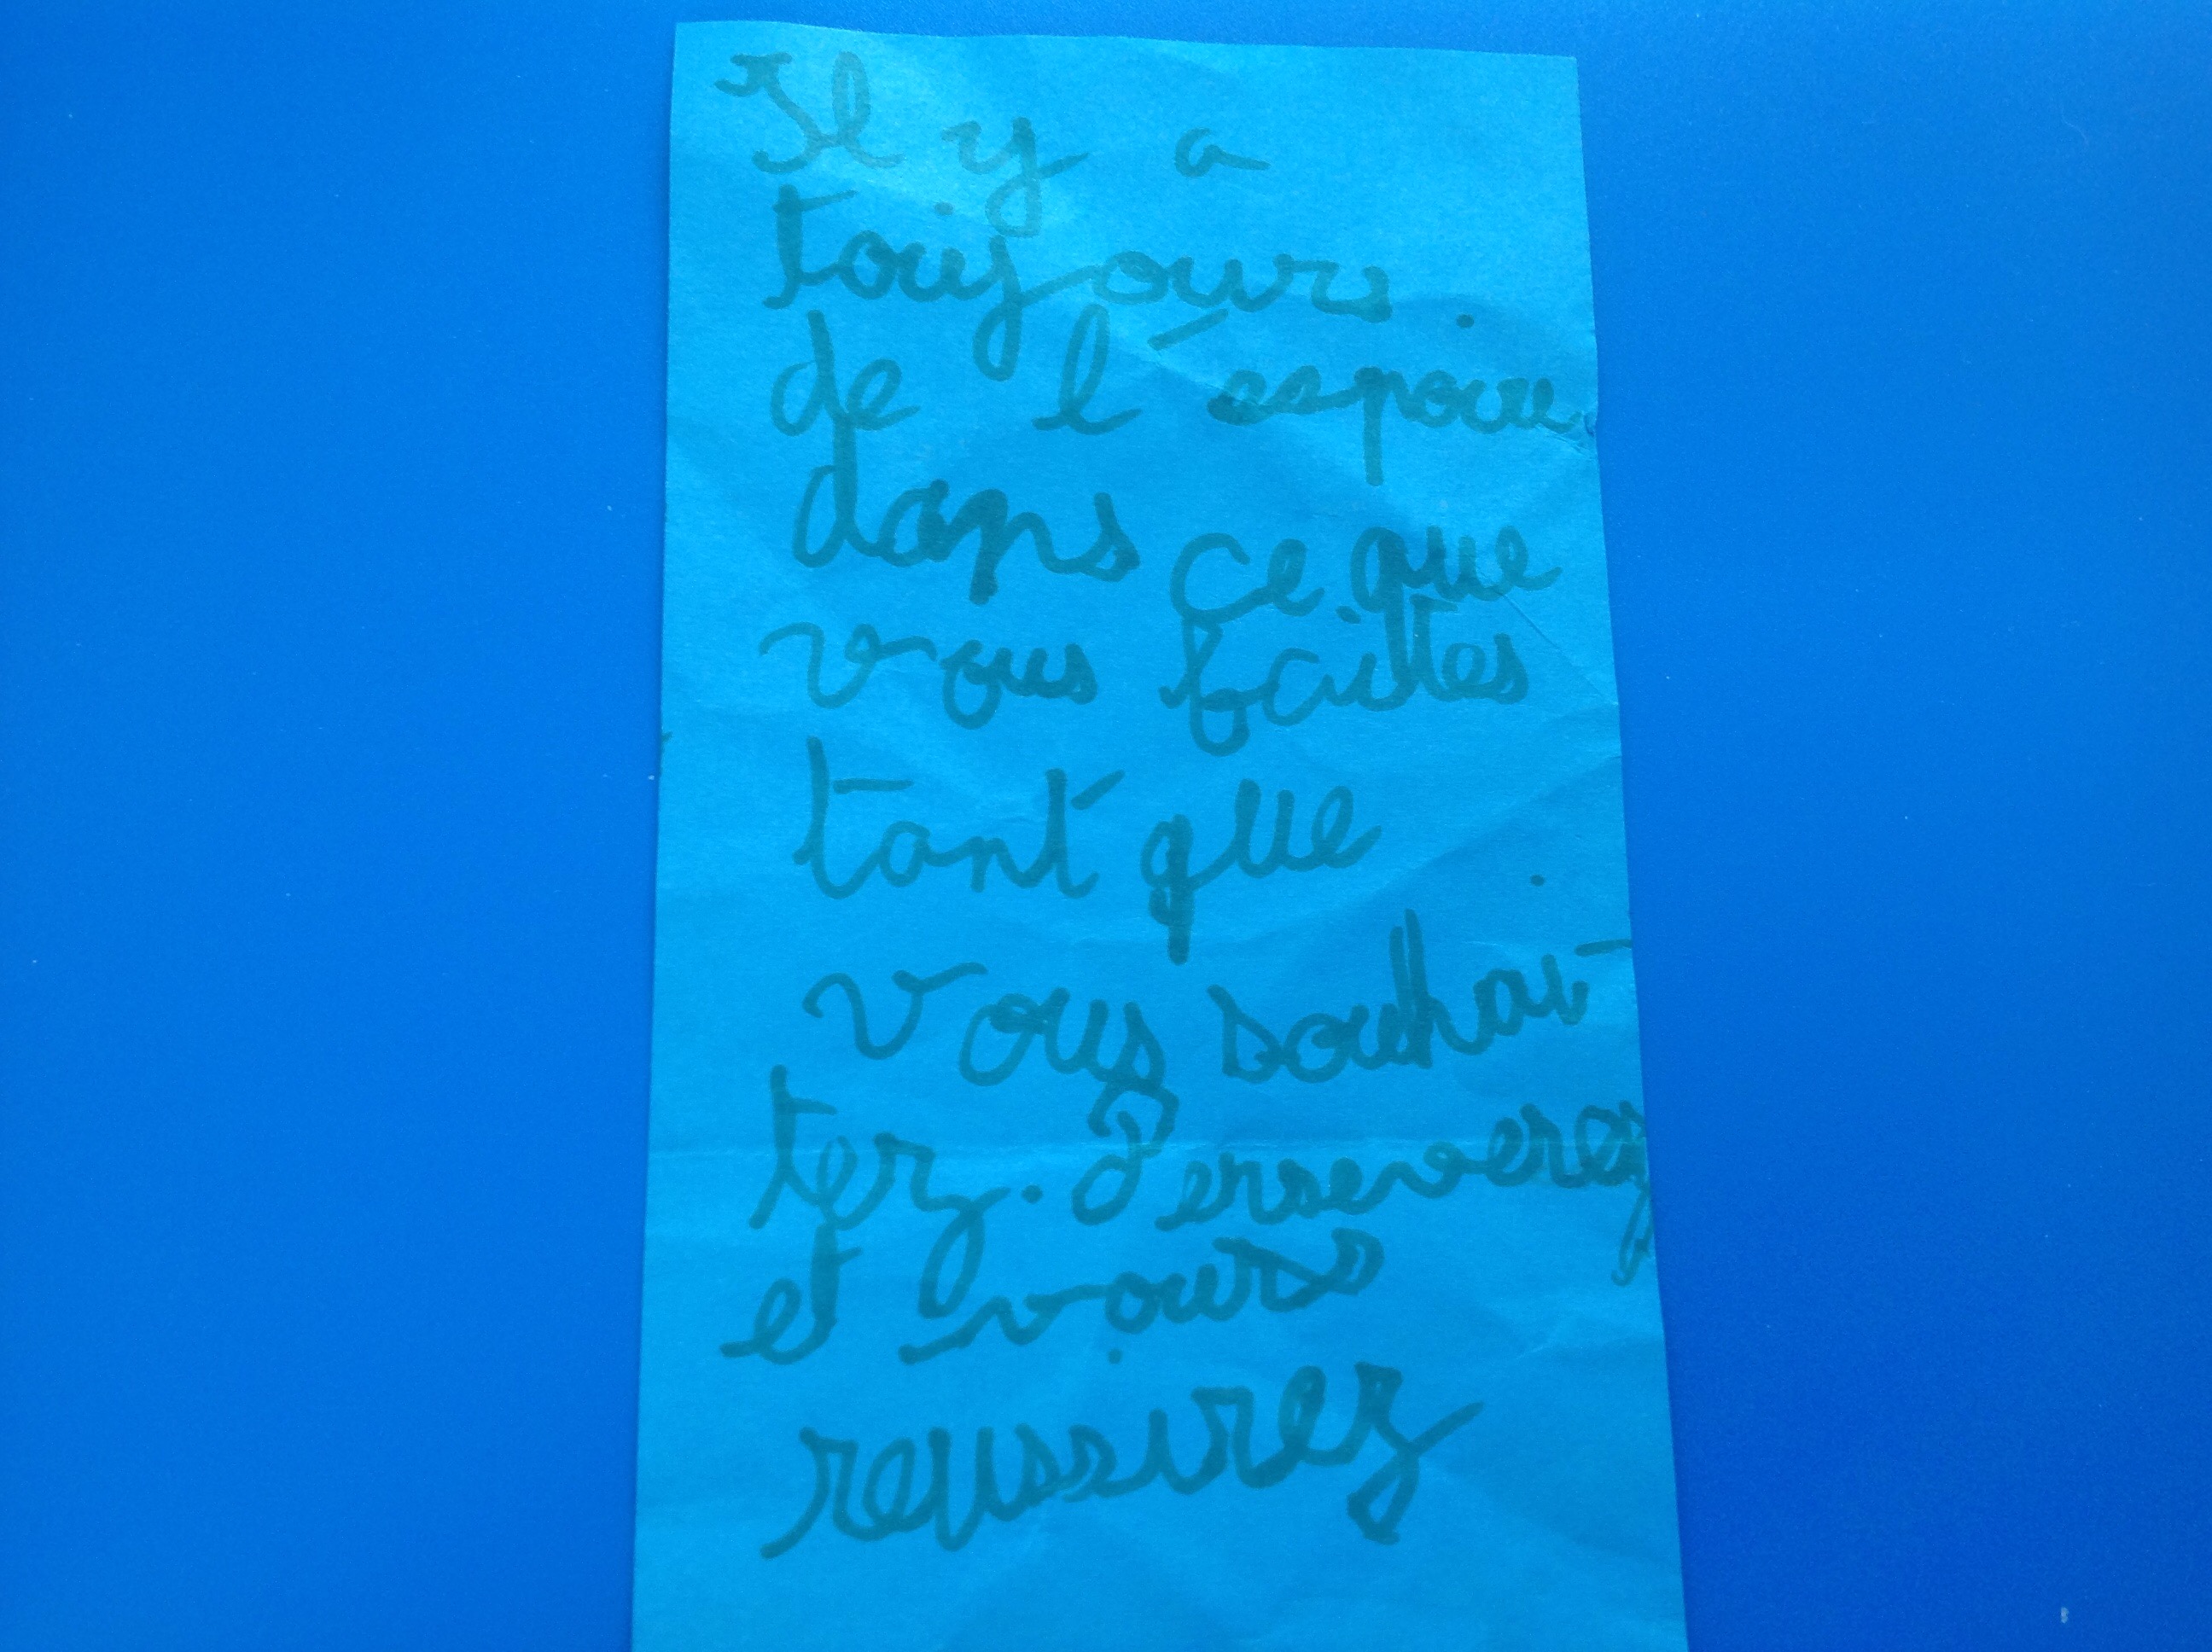 Il y a
toujours
de l'espoir
dans ce que
vous faites
tant que
vous souhai
tez. Perseverez
et vous
reussirez